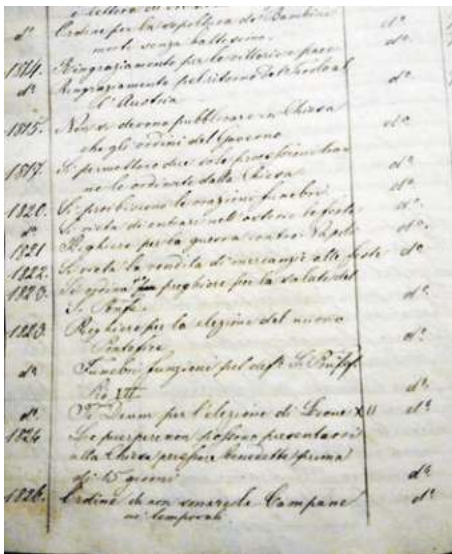 d.º Ordine per la sepoltura de' Bambini d.º
morti senza battesimo. d.º
1814. Ringraziamento per la vittoria e pace
d.º Ringraziamento pel ritorno del Tirolo al d.º
l'Austria
1815. Non si devono pubblicare in Chiesa d.º
che gli ordini del Governo
1817. Si permettono due sole processioni d.º
ne le ordinate dalla Chiesa d.º
1820. Si proibiscono le orazioni funebri. d.º
d.º Si vieta di entrare nell'osterie le feste d.º
1821 Preghiere per la guerra contro Napoli d.º
1822. Si vieta la vendita di mercanzie alle feste d.º
1823. Si ordina preghiere per la salute del
S. Ponte. d.º
1823. Preghiere per la elezione del nuovo
Pontefice d.º
d.º Funebri funzioni pel def.º S. Pontef.
Pio VII d.º
d.º Te Deum per l'elezione di Leone XII d.º
1824 Le puerpere non possono presentarsi
alla Chiesa per essere benedette prima
di 15 giorni d.º
1826. Ordine di non sonare le Campane d.º
ne' temporali.